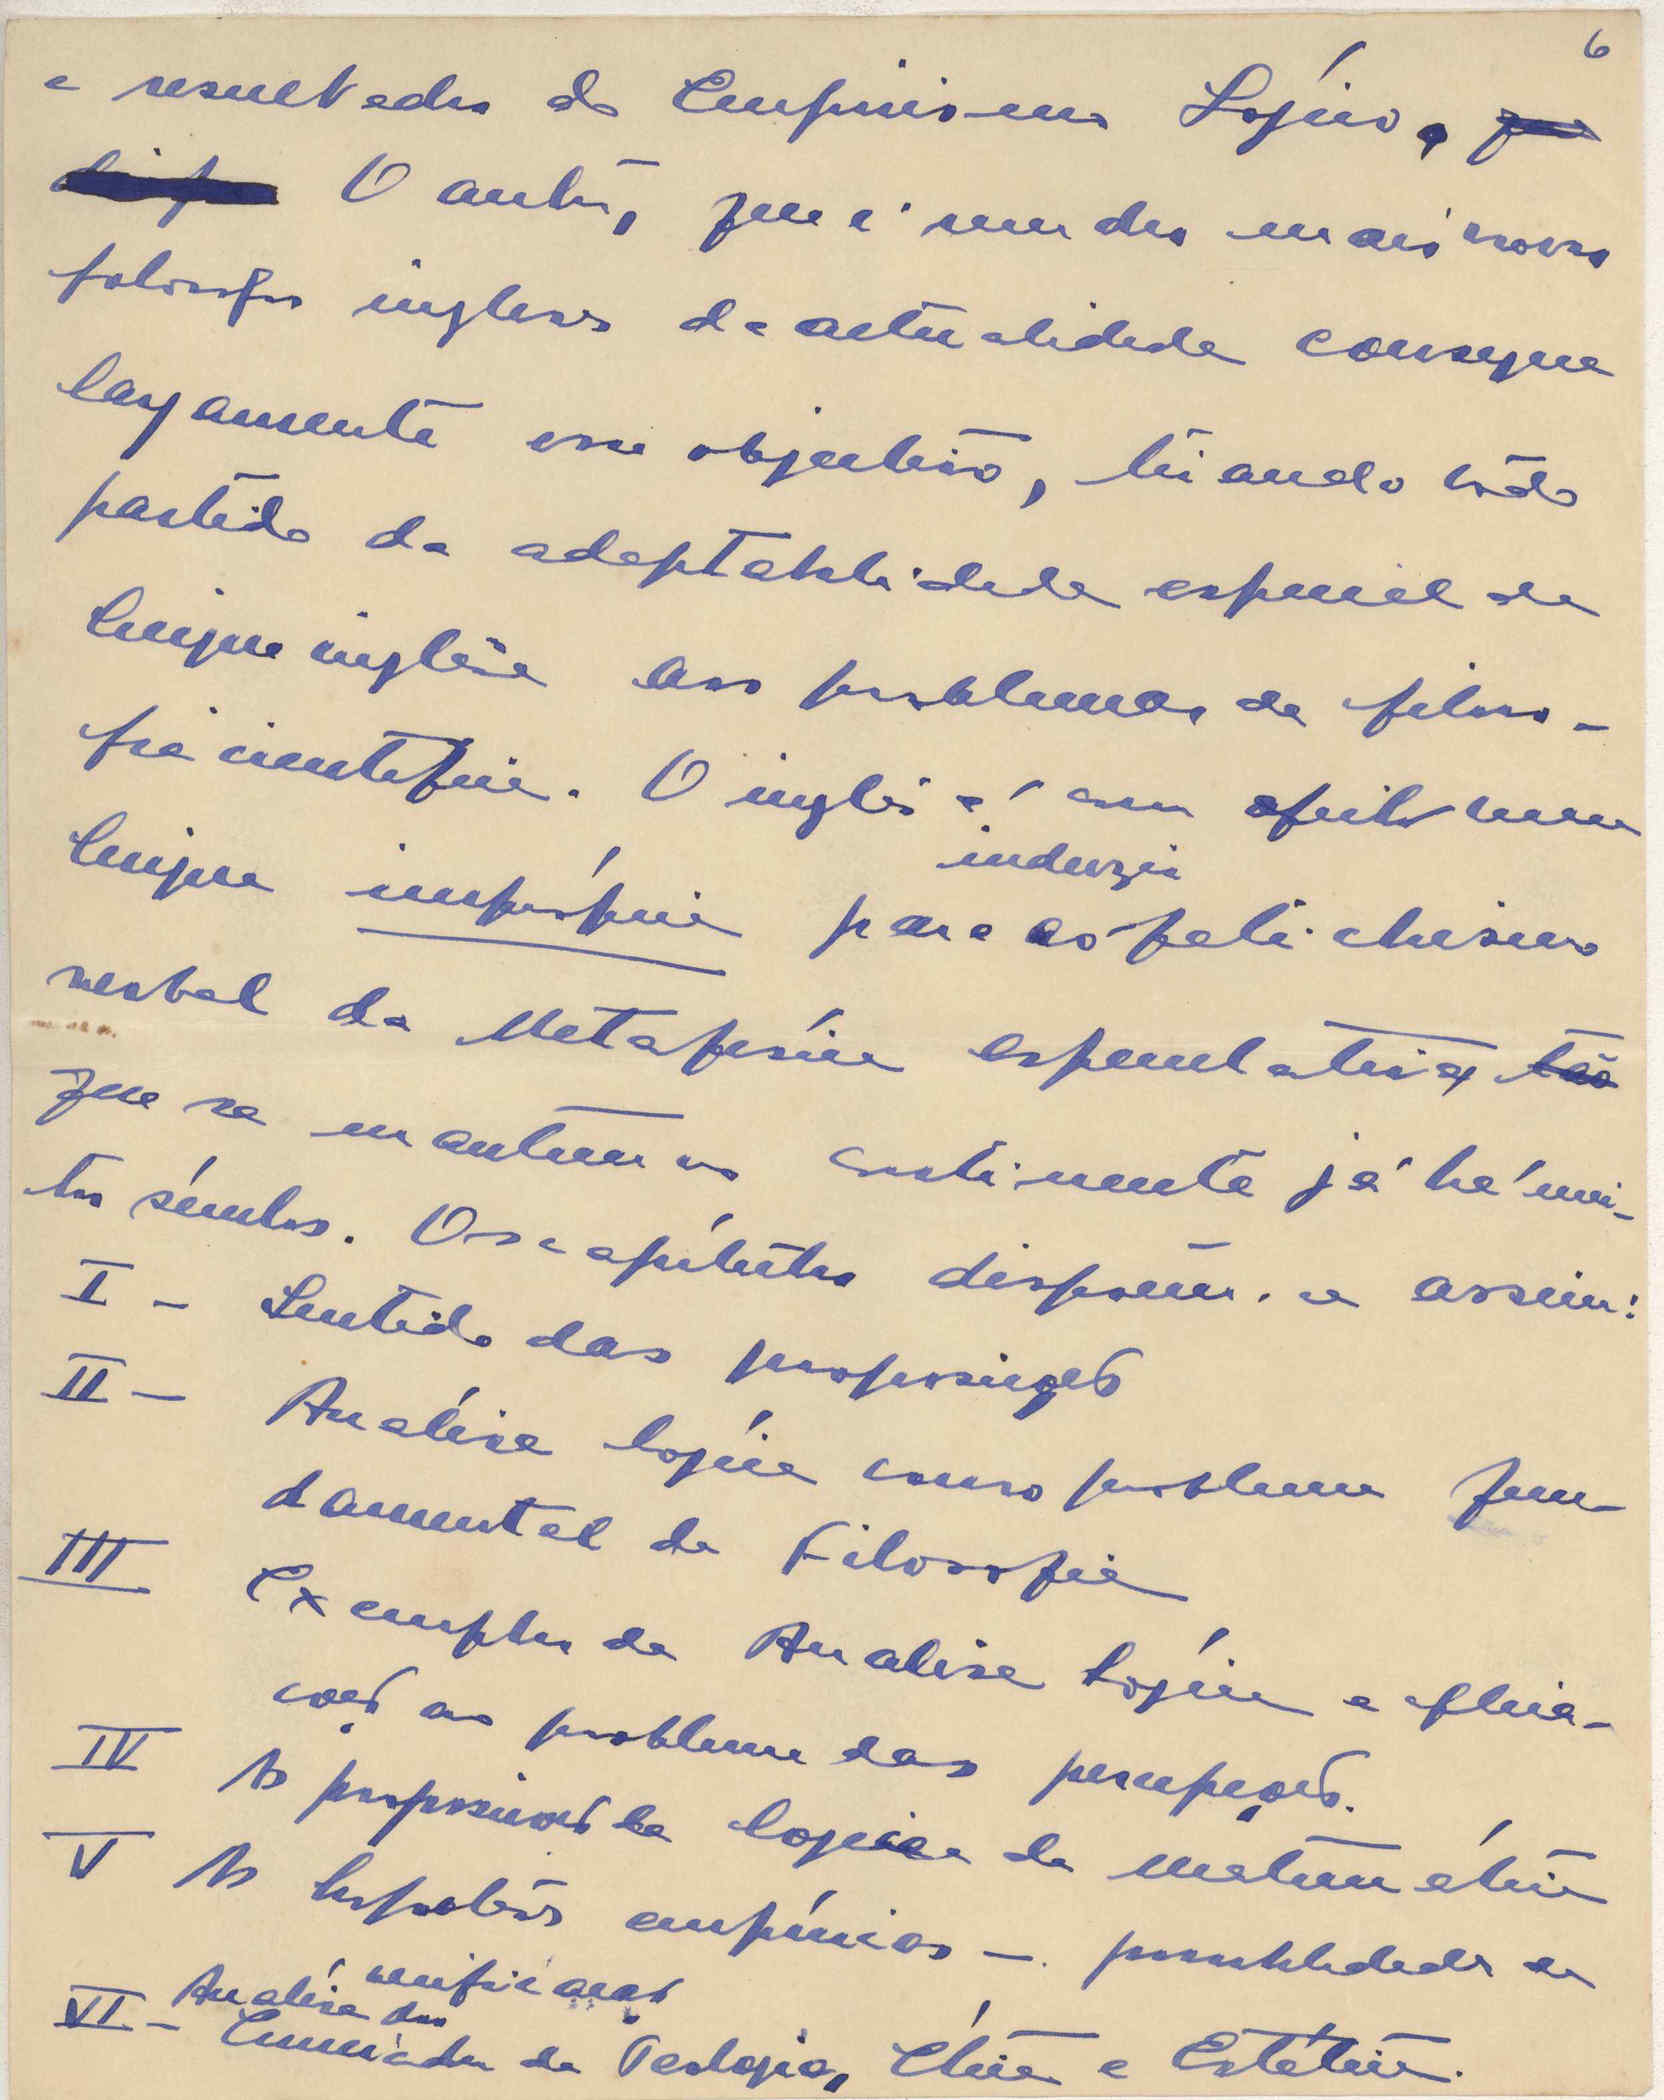 6
e resultados do Empirismo Lógico, que
O autor, que é um dos mais novos
filosofos ingleses da actualidade consegue
largamente esse objectivo, tirando todo
partido da adaptabilidade especial da
lingua inglêsa aos problemas da filoso-
fia cientifica. O inglês é com efeito uma
lingua imprópria para induzir ao fetichismo
verbal da Metafísica especulativa, tão
que se mantem no continente já há mui-
tos séculos. Os capítulos dispõem-se assim:
I - Sentido das proposições
II - Análise lógica como problema fun-
damental da Filosofia
III Exemplos da Analise Lógica e aplica-
ções ao problema das percepções.
IV As proposições da logica e da matemática
V As hipoteses empíricas - possibilidade de
verificação
VI - Análise dos Enunciados da Teologia, Ética e Estética.